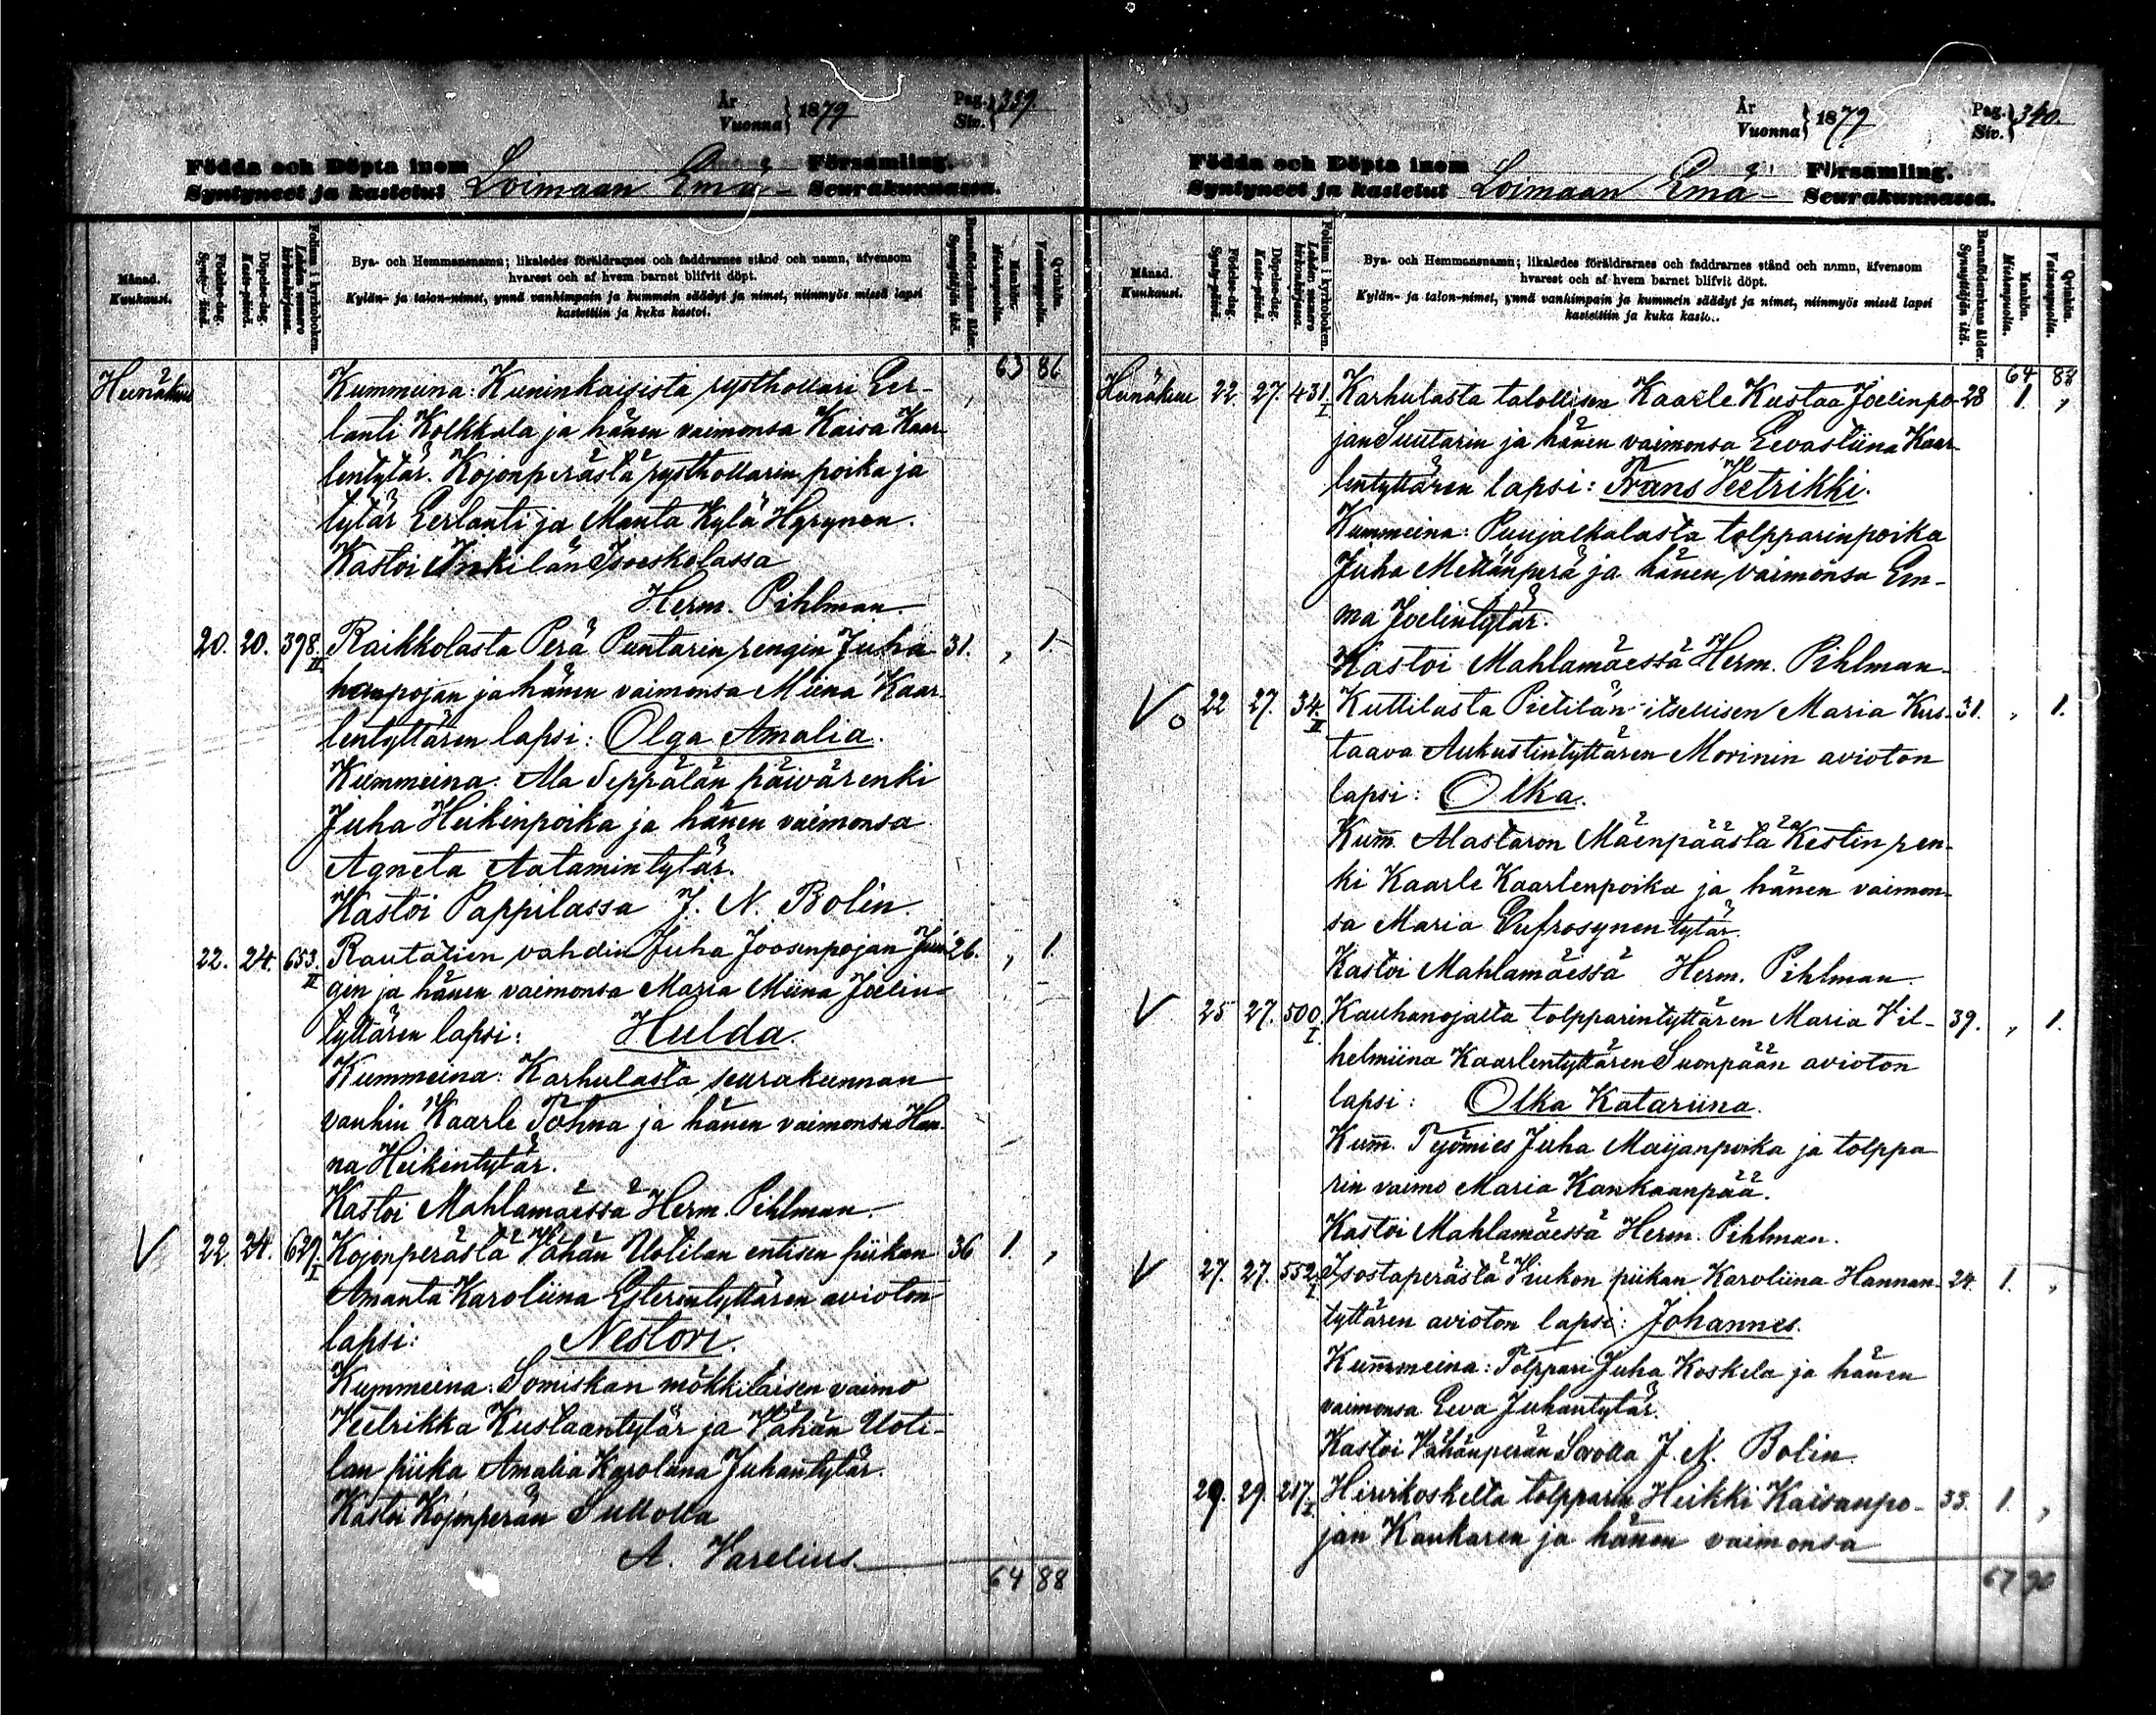 År
Vuonna } 1879
Pag.
Siv. } 339.
Födda och Döpta inom
Syntyneet ja kastetut
Loimaan Emä-
Församling.
Seurakunnassa.
Månad.
Kuukausi.
Födelse-dag.
Synty-päivä.
Döpelse-dag.
Kaste-päivä.
Folium i kyrkoboken.
Lehden numero kirkonkirjassa.
Bya- och Hemmansnamn; likaledes föräldrarnes och faddrarnes stånd och namn, äfvensom
hvarest och af hvem barnet blifvit döpt.
Kylän- ja talon-nimet, ynnä vanhimpain ja kummein säädyt ja nimet, niinmyös missä lapsi
kastettiin ja kuka kastoi.
Barnaföderskans ålder.
Synnyttäjän ikä.
Mankön.
Miehenpuolia.
Qvinkön.
Vaimonpuolia.
63 86
Heinäkuu
Kummeina: Kuninkaisista rysthollari Eer-
lanti Kolkkala ja hänen vaimonsa Kaisa Kaar-
lentytär. Kojonperästä rysthollarin poika ja
tytär Eerlanti ja Manta Kylä Hyrynen.
Kastoi Inkilän Isoeskolassa
Herm. Pihlman.
20. 20. 398. II Raikkolasta Perä Puntarin rengin Juha 31. , 1.
hanpojan ja hänen vaimonsa Miina Kaar-
lentyttären lapsi: Olga Amalia.
Kummeina: Ala Seppälän päivärenki
Juha Heikinpoika ja hänen vaimonsa
Agneta Aatamintytär.
Kastoi Pappilassa J. N. Bolin.
22. 24. 653. II Rautatien vahdin Juha Joosenpojan Juni- 26. , 1.
gin ja hänen vaimonsa Maria Miina Joelin-
tyttären lapsi: Hulda.
Kummeina: Karhulasta seurakunnan
vanhin Kaarle Töhna ja hänen vaimonsa Han-
na Heikintytär.
Kastoi Mahlamäessä Herm. Pihlman.
V 22 24. 629. I Kojonperästä Vähän Uotilan entisen piikan 36 1. ,
Amanta Karoliina Esterintyttären avioton
lapsi: Nestori.
Kummeina: Somiskan mökkiläisen vaimo
Veetrikka Kustaantytär ja Vähän Uoti-
lan piika Amalia Karolina Juhantytär.
Kastoi Kojonperän Sullolla
A. Varelius.
64 88
År
Vuonna } 1879
Pag.
Siv. } 340.
Födda och Döpta inom
Syntyneet ja kastetut
Loimaan Emä-
Församling.
Seurakunnassa.
Månad.
Kuukausi.
Födelse-dag.
Synty-päivä.
Döpelse-dag.
Kaste-päivä.
Folium i kyrkoboken.
Lehden numero kirkonkirjassa.
Bya- och Hemmansnamn; likaledes föräldrarnes och faddrarnes stånd och namn, äfvensom
hvarest och af hvem barnet blifvit döpt.
Kylän- ja talon-nimet, ynnä vanhimpain ja kummein säädyt ja nimet, niinmyös missä lapsi
kastettiin ja kuka kasto..
Barnaföderskans ålder.
Synnyttäjän ikä.
Mankön.
Miehenpuolia.
Qvinkön.
Vaimonpuolia.
64 88
Heinäkuu 22 27. 431. I Karhulasta talollisen Kaarle Kustaa Joelinpo- 28 1. ,
jan Suutarin ja hänen vaimonsa Eevastiina Kaar-
lentyttären lapsi: Frans Veetrikki.
Kummeina: Puujalkalasta tolpparinpoika
Juha Metsänperä ja hänen vaimonsa Em-
ma Joelintytär.
Kastoi Mahlamäessä Herm. Pihlman.
V o 22 27. 34. II Kuttilasta Pietilän itsellisen Maria Kus- 31. , 1.
taava Aukustintyttären Morinin avioton
lapsi: Olka.
Kum. Alastaron Mäenpäästä Kestin ren-
ki Kaarle Kaarlenpoika ja hänen vaimon-
sa Maria Eufrosynentytär.
Kastoi Mahlamäessä Herm. Pihlman.
V 25 27. 500. I Kauhanojasta tolpparintyttären Maria Vil- 39. , 1.
helmiina Kaarlentyttären Suonpään avioton
lapsi: Olka Katariina.
Kum. Työmies Juha Maijanpoika ja tolppa
rin vaimo Maria Kankaanpää.
Kastoi Mahlamäessä Herm. Pihlman.
V 27. 27. 552. I Isostaperästä Viukon piikan Karoliina Hannan- 24. 1. ,
tyttären avioton lapsi: Johannes.
Kummeina: Tolppari Juha Koskela ja hänen
vaimonsa Eeva Juhantytär.
Kastoi Vähänperän Sorolla J. N. Bolin.
29. 29. 217. I Hirvikoskelta tolpparin Heikki Kaisanpo- 33. 1. ,
jan Kankaren ja hänen vaimonsa
67 90